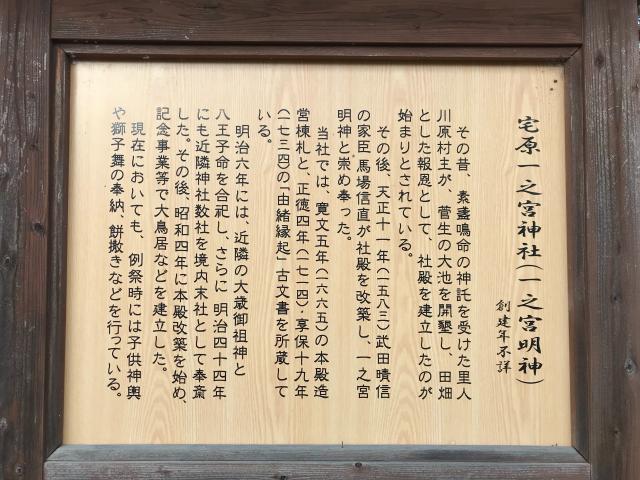 宅原一之宮神社(一之宮明神)
創建年不詳
その昔、素盞鳴命の神託を受けた里人
川原村主が、菅生の大池を開墾し、田畑
とした報恩として、社殿を建立したのが
始まりとされている。
その後、天正十一年(一五八三)武田晴信
の家臣馬場信直が社殿を改築し、一之宮
明神と崇め奉った。
当社では、寛文五年(一六六五)の本殿造
営棟札と、正徳四年(一七一四)・享保十九年
(一七三四)の「由緒縁起」古文書を所蔵して
いる。
明治六年には、近隣の大歳御祖神と
八王子命を合祀し、さらに明治四十四年
にも近隣神社数社を境内末社として奉斎
した。その後、昭和四年に本殿改築を始め、
記念事業等で大鳥居などを建立した。
現在においても、例祭時には子供神輿
や獅子舞の奉納、餅撒きなどを行っている。